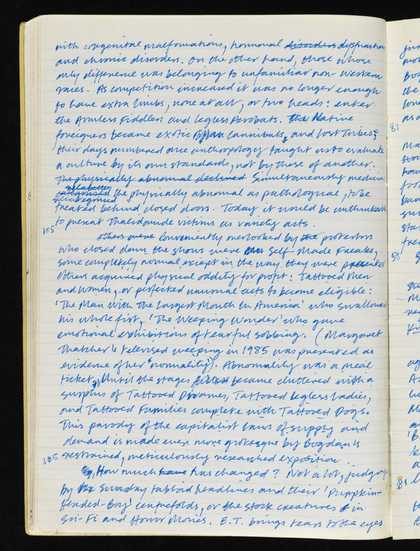 with congenital malformations, hormonal disorders dysfunction
and chronic disorders. On the other hand, those whose
only difference was belonging to unfamiliar non-western
races. As competition increased it was no longer enough
to have extra limbs, none at all, or two heads: enter
the Armless Fiddlers and Legless Acrobats. The Native
foreigners became exotic cannibals, and Lost Tribes;
their days numbered once anthropology taught us to evaluate
a culture by its own standards, not by those of another.
The physically abnormal declined Simultaneously medicine
relabelled
the physically abnormal as pathological, to be
treated behind closed doors. Today it would be unthinkable
to present Thalidomide victims as variety acts.
105
others were Conveniently overlooked by the protestors
who closed down the shows were the Self-Made Freaks,
some completely normal except in the way they were presented
Others acquired physical oddity for profit: Tattooed Men
and Women, or perfected unusual acts to become eligible:
'The Man With The Largest Mouth in America' who swallowed
his whole fist, 'The Weeping Wonder' who gave
emotional exhibitions of tearful sobbing. (Margaret
Thatcher's televised weeping in 1985 was presented as
evidence of her 'normality'). Abnormality was a meal
ticket, Until the stage became cluttered with a
surplus of Tattooed Dwarves, Tattooed Legless Ladies,
and Tattooed Families complete with Tattooed Dogs.
This parody of the capitalist laws of supply and
demand is made even more grotesque by Bogdan's
restrained, meticulously researched exposition.
105
How much has changed? Not a lot, judging
by the Sunday tabloid headlines and their 'Pumpkin-
Headed-Boy' centrefolds, or the stock creatures in
Sci-Fi and Horror Movies. E.T. brings tears to the eyes
81
81
81